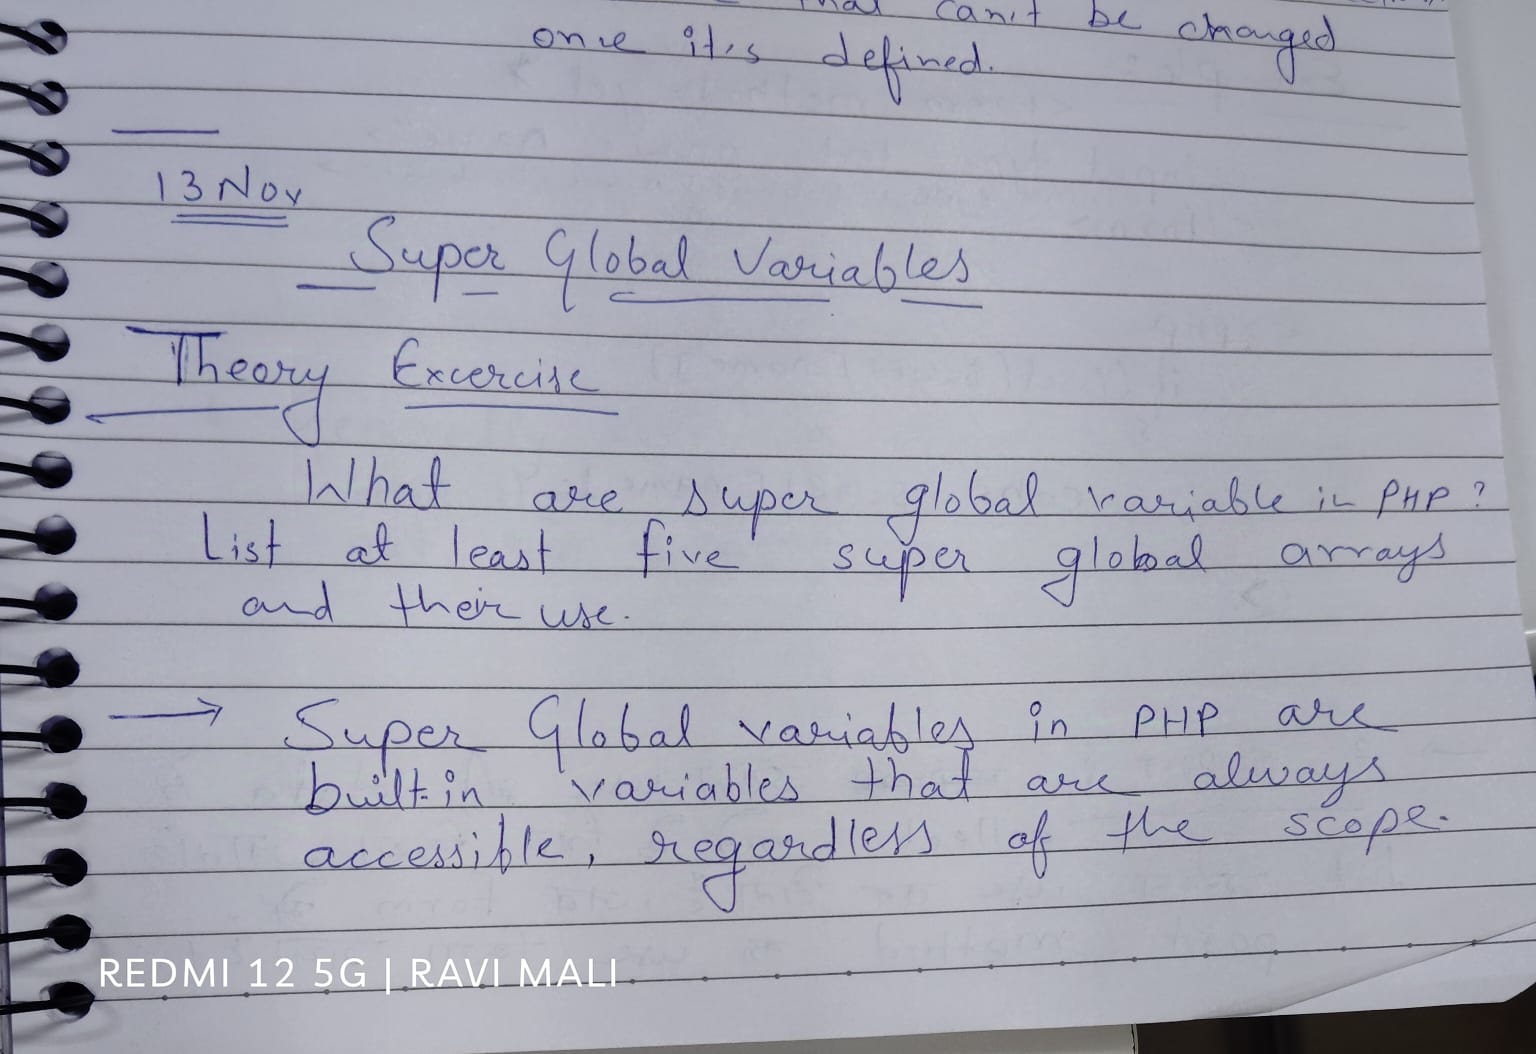 that can't be changed
once it's defined.
13 Nov
Super Global Variables
Theory Excercise
What are super global variable in PHP?
List at least five super global arrays
and their use.
→ Super Global variables in PHP are
built-in variables that are always
accessible, regardless of the scope.
REDMI 12 5G | RAVI MALI